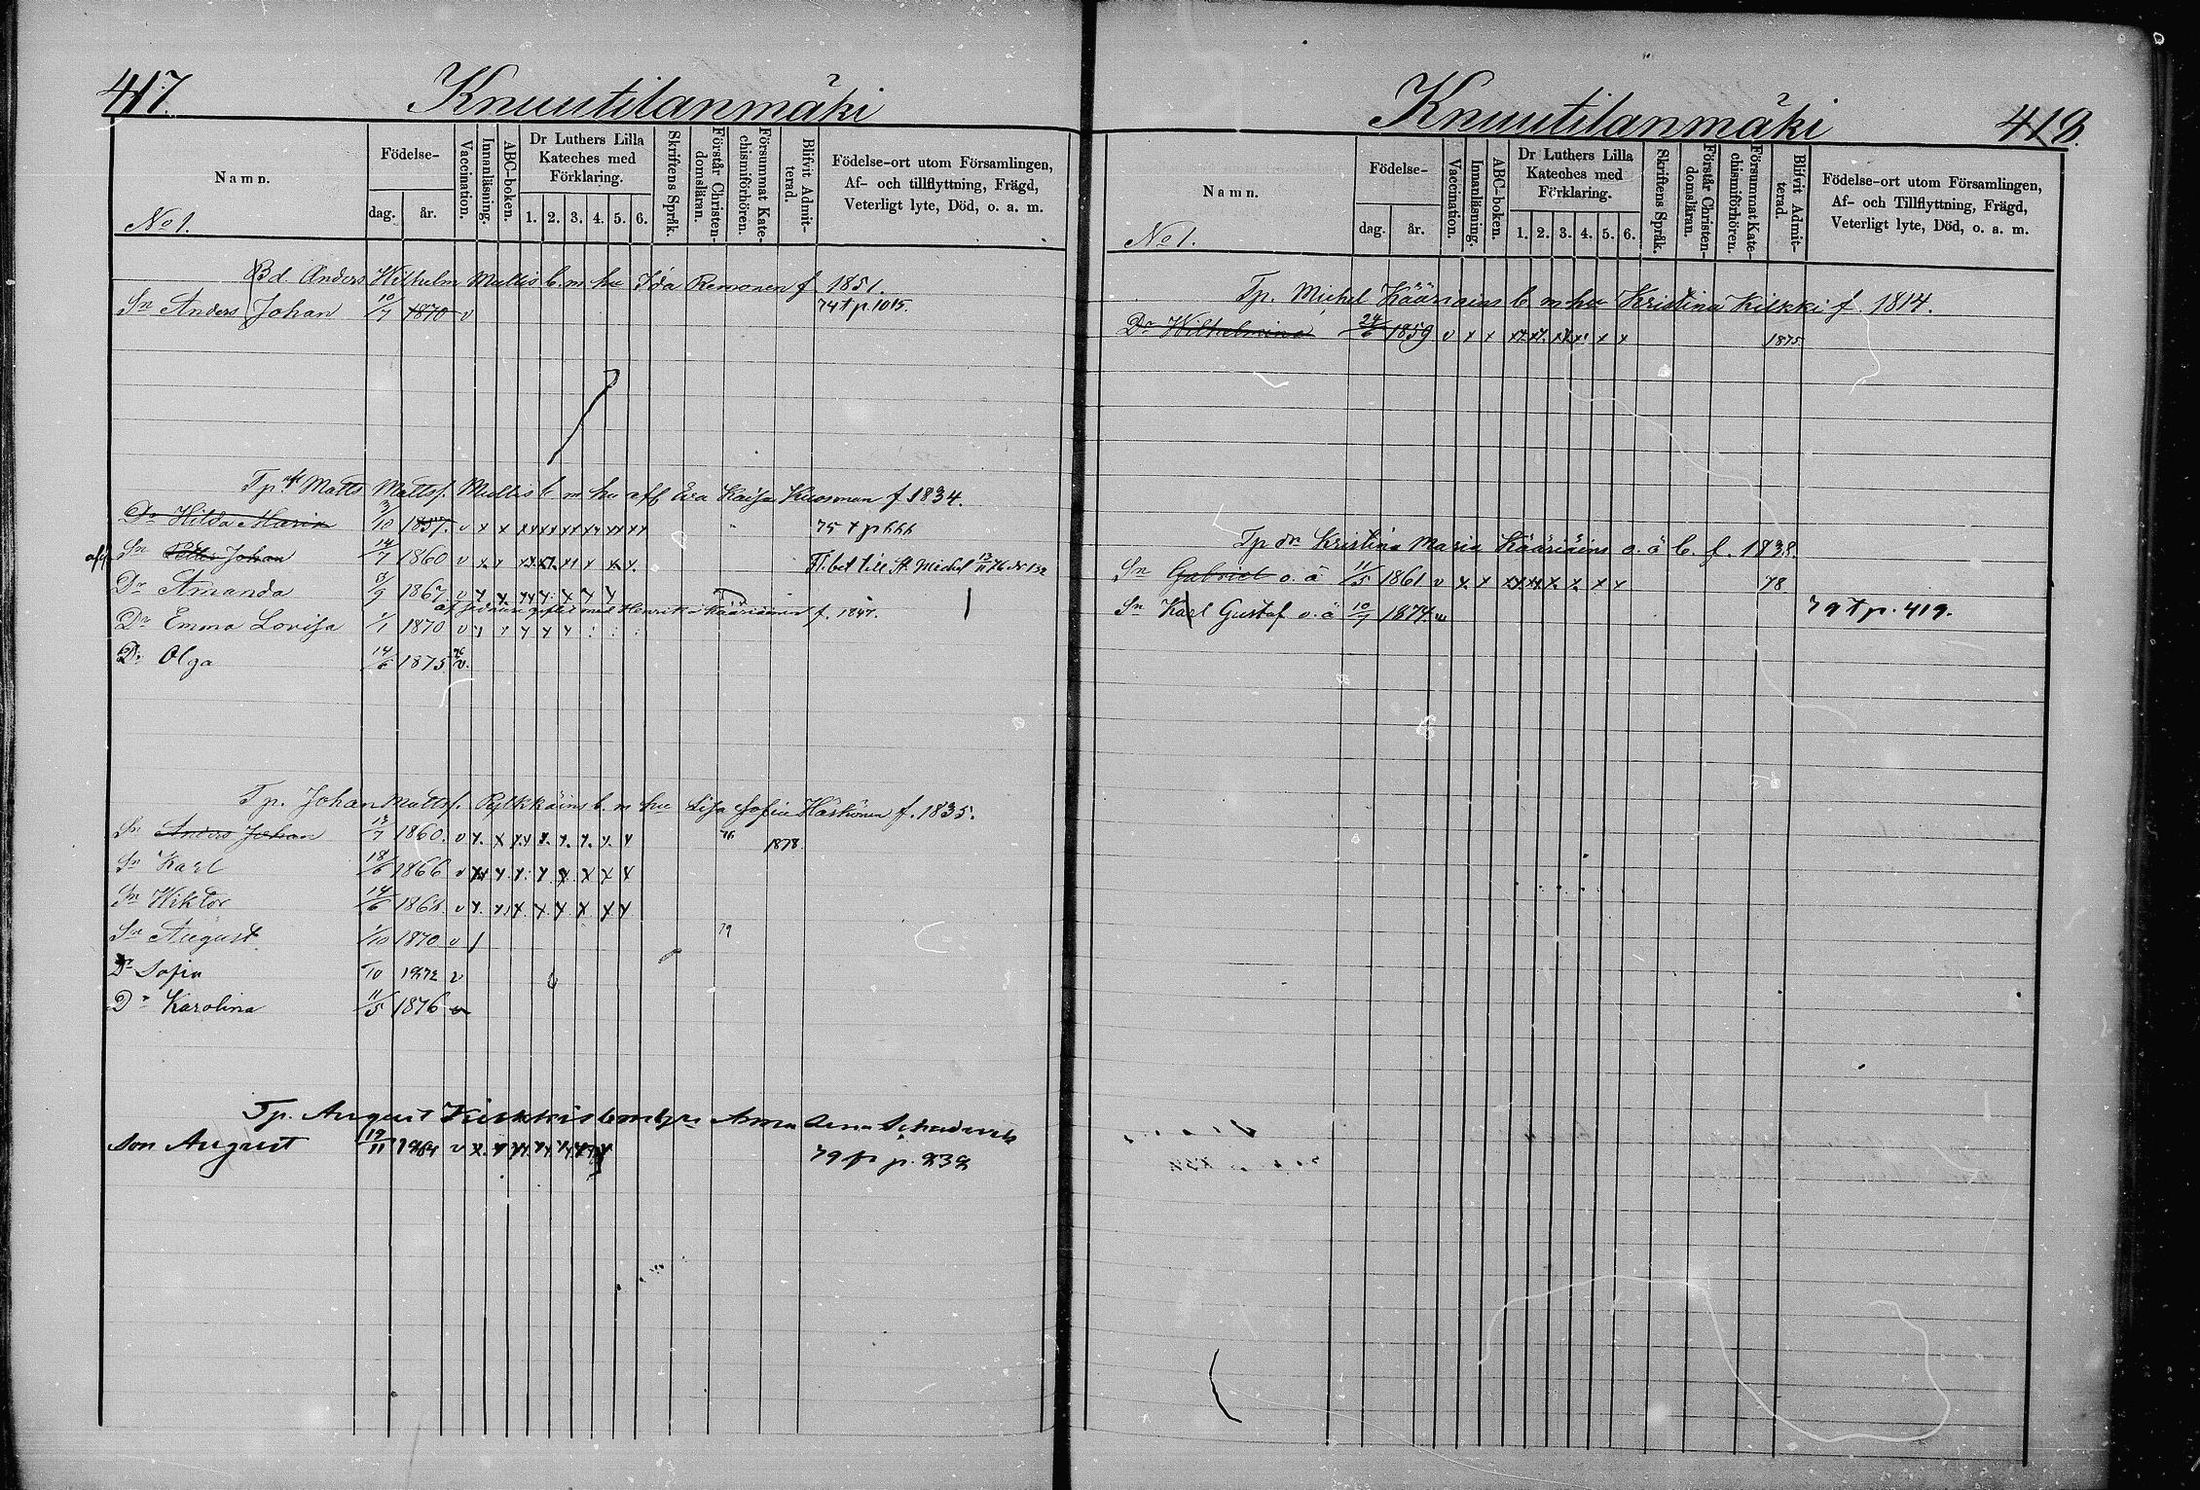 417.
Knuutilanmäki
Namn.
Födelse-
dag. år.
Vaccination.
Innanläsning.
ABC-boken.
Dr Luthers Lilla
Kateches med
Förklaring.
1. 2. 3. 4. 5. 6.
Skriftens Språk.
Förstår Christen-
domsläran.
Försummat Kate-
chismiförhören.
Blifvit Admit-
terad.
Födelse-ort utom Församlingen,
Af- och tillflyttning, Frägd,
Veterligt lyte, Död, o. a. m.
No 1.
Bd. Anders Wilhelm Mullis b. m. hu Ida Remonen f. 1851.
Sn Anders Johan 10/7 1870 v 74 t p. 1015.
Tp. Matts Mattss. Mullis b m hu Eva Kaisa Kuosmen f 1834.
Dr Hilda Maria 3/10 1857. v x x 75 t p
Sn Petter Johan 14/7 1860 v x x Fl. bet till St. Michel
Dr Amanda 3/9 1867. v
gifted med Henrik Kääriäinen f. 1847.
Dr Emma Lovisa 1/1 1870 v
Dr Olga 14/6 1875 v.
Tp. Johan Mattss. Pylkkäins b. m hu Lisa Sofia Häskönen f. 1835.
Sn Anders Johan 1860. v 76 1878
Sn Karl 18/6 1866 v
Sn Wiktor 14/6 1868 v
Sn August 1/10 1870 v 79
Dr Sofia 10 1872 v
Dr Karolina 11/5 1876 v
Tp. August Anna
Son August 19/11 v 79 p. 232
Knuutilanmäki
418.
Namn.
Födelse-
dag. år.
Vaccination.
Innanläsning.
ABC-boken.
Dr Luthers Lilla
Kateches med
Förklaring.
1. 2. 3. 4. 5. 6.
Skriftens Språk.
Förstår Christen-
domsläran.
Försummat Kate-
chismiförhören.
Blifvit Admit-
terad.
Födelse-ort utom Församlingen,
Af- och Tillflyttning, Frägd,
Veterligt lyte, Död, o. a. m.
No 1.
Tp. Michel Kääriäins b. m hu Kristina Kirkki f. 1814.
Dr Wilhelmina 24/6 1859 v x x 1875
Tp dr Kristina Maria Kääriäins o. ä b. f. 1838.
Sn Gabriel o. ä 11/5 1861 v x x 78
Sn Karl Gustaf o. ä 10/7 1874 v 79 t p. 419.